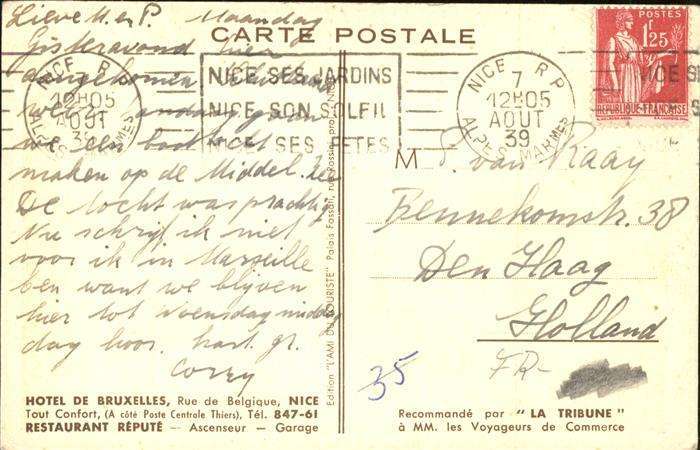 CARTE POSTALE
Lieve M. en P. Maandag
Gisteravond hier
aangekomen
we
we een boottocht
maken op de Middel. Zee
De tocht was prachtig
Nu schrijf ik niet
voor ik in Marseille
ben want we blijven
hier tot Woensdag middag
dag hoor. hart. gr.
Corry
NICE R.P.
12H05
AOUT
39
ALPES MARMES
NICE SES JARDINS
NICE SON SOLEIL
NICE SES FETES
NICE R P
7
12H05
AOUT
39
ALPES MARMES
POSTES
1F25
REPUBLIQUE FRANÇAISE
NICE SE
M
v. Raay
Bennekomstr. 38
Den Haag
Holland
FR-
35
Edition "L'AMI DU TOURISTE" Palais Fossati, rue
HOTEL DE BRUXELLES, Rue de Belgique, NICE
Tout Confort, (A côté Poste Centrale Thiers), Tél. 847-61
RESTAURANT RÉPUTÉ — Ascenseur — Garage
Recommandé par "LA TRIBUNE"
à MM. les Voyageurs de Commerce